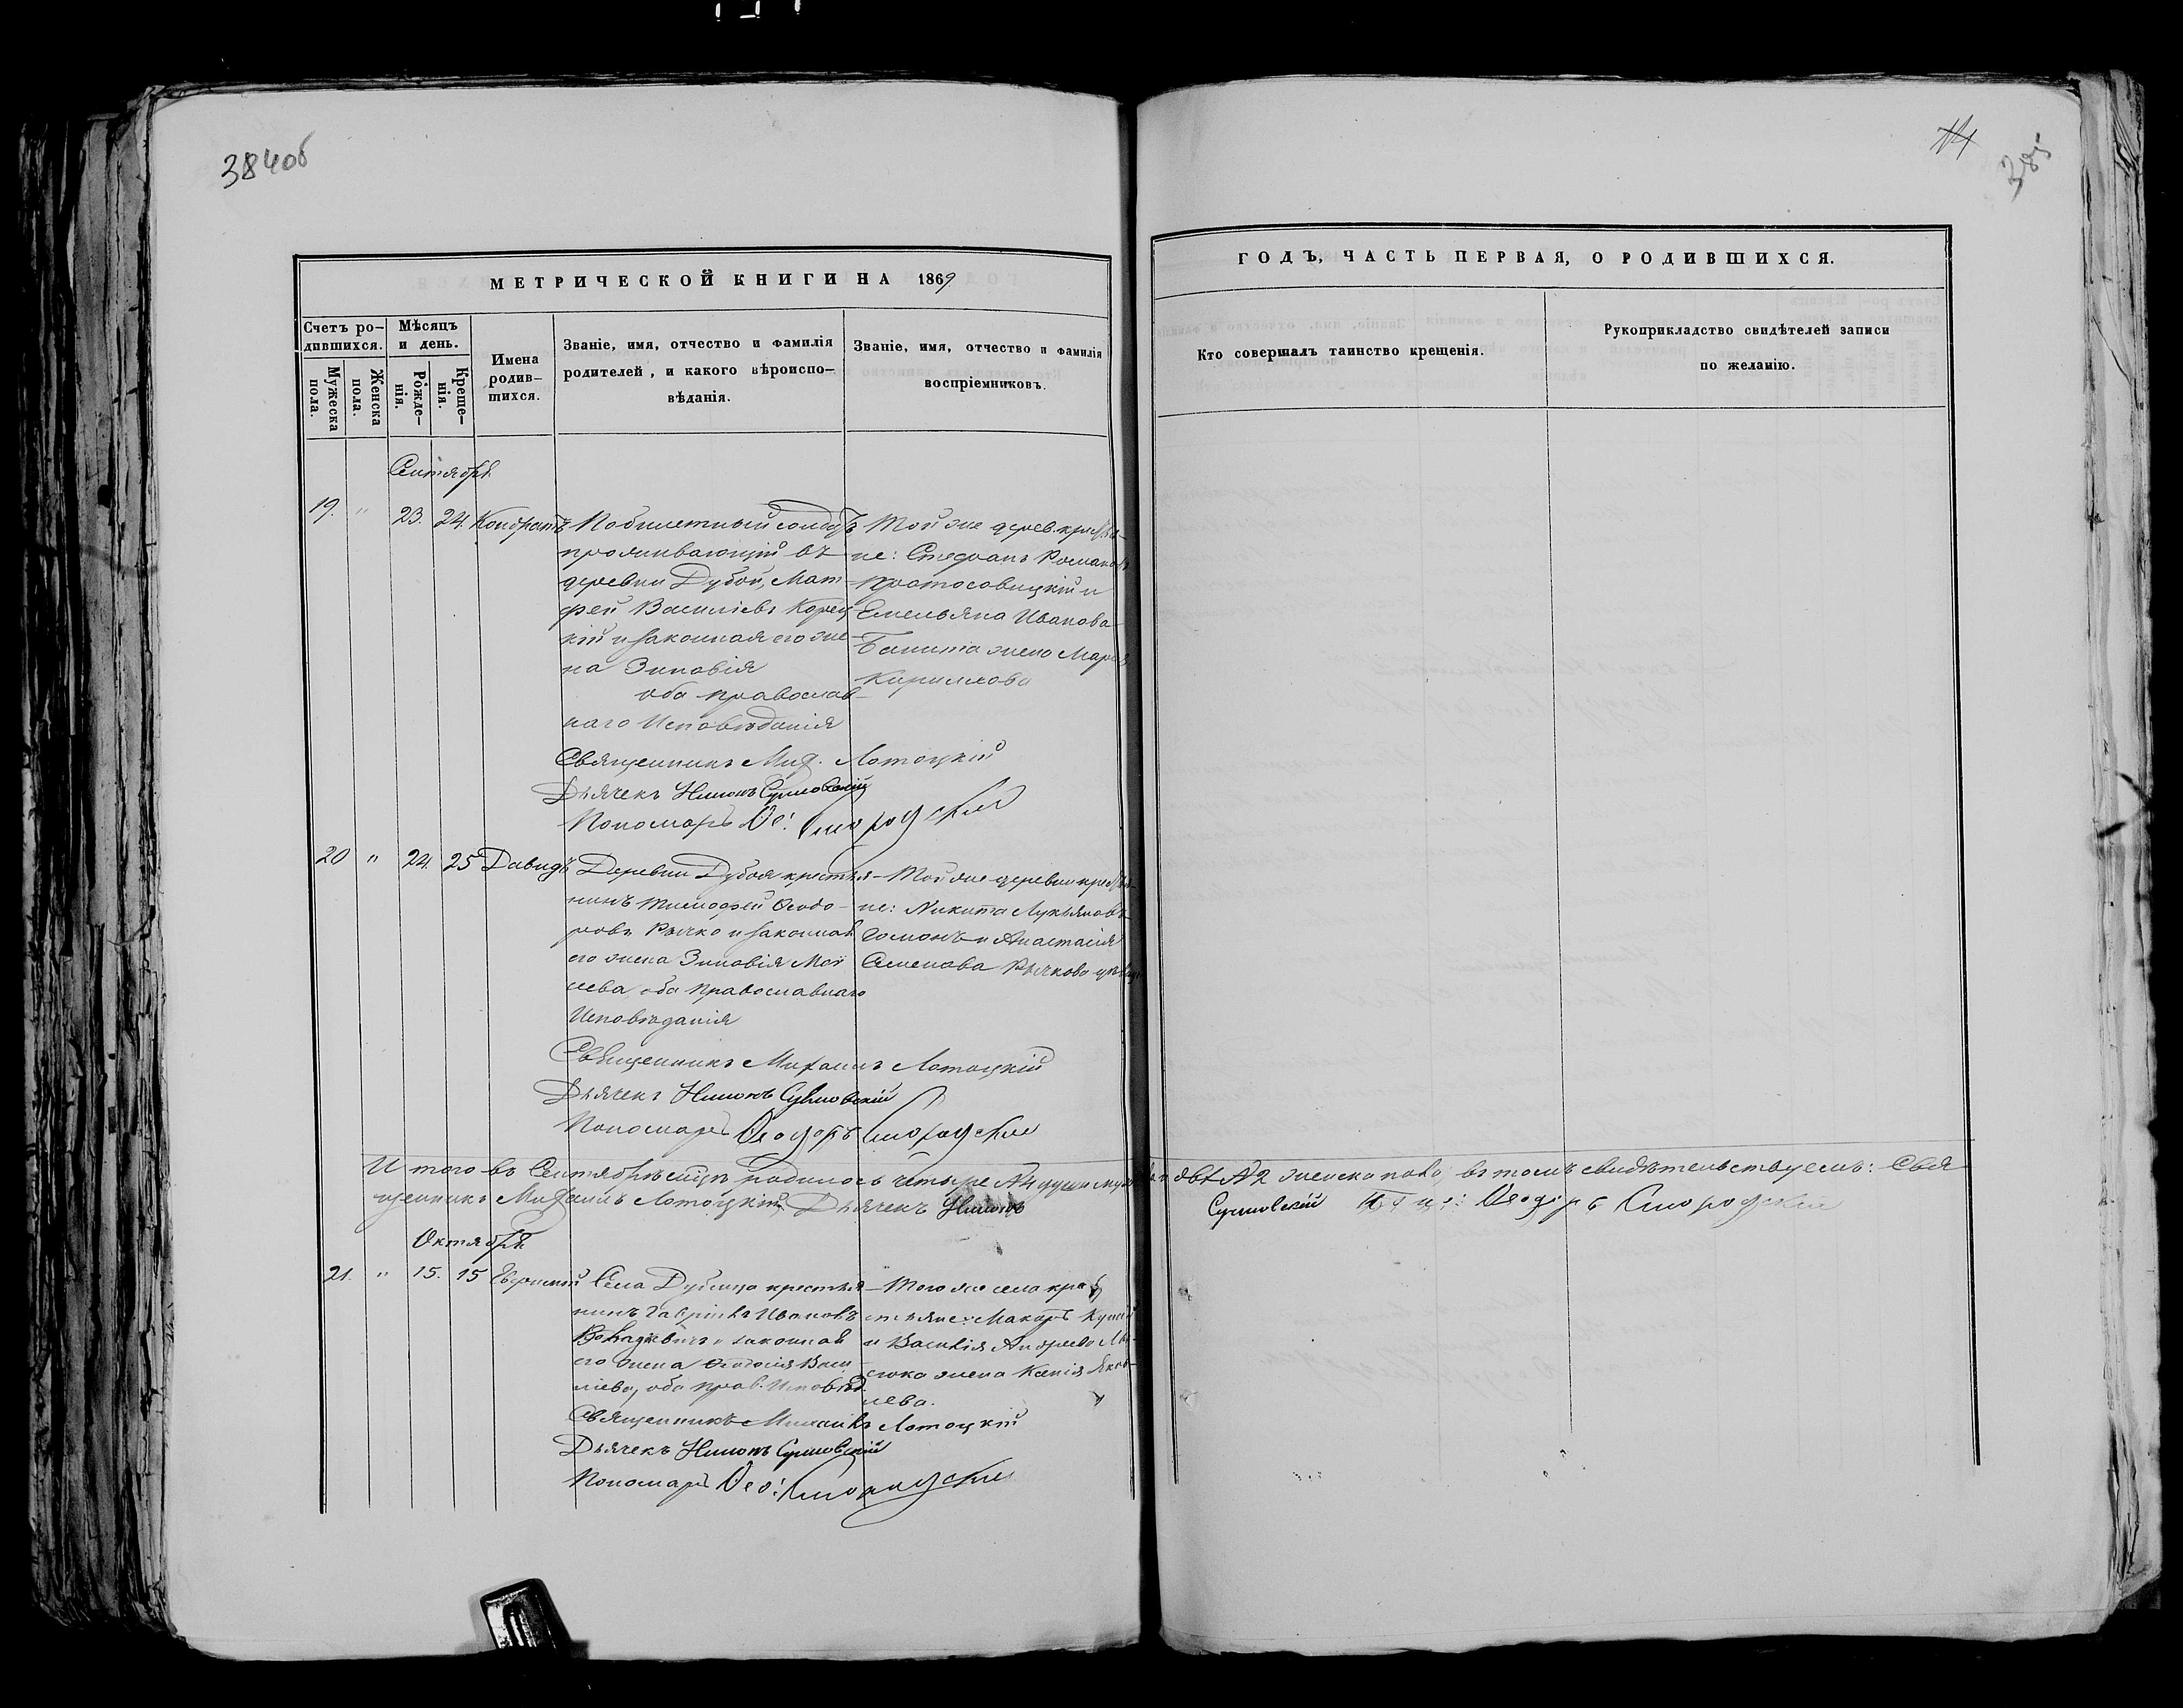 384об
385
МЕТРИЧЕСКОЙ КНИГИ НА 1869
ГОДЪ, ЧАСТЬ ПЕРВАЯ, О РОДИВШИХСЯ.
Счетъ ро-
дившихся.
Мужеска
пола.
Женска
пола.
Мѣсяцъ
и день.
Рожде-
нія.
Креще-
нія.
Имена
родив-
шихся.
Званіе, имя, отчество и фамилія
родителей, и какого вѣроиспо-
вѣданія.
Званіе, имя, отчество и фамилія
воспріемниковъ.
Кто совершалъ таинство крещенія.
Рукоприкладство свидѣтелей записи
по желанію.
Сентябрь
19. " 23. 24. Кондратъ
Побилетный солдатъ
проживающій въ
деревни Дубой, Мат-
фей Василіевъ Корец
кій и законная его же-
на Зиновія
оба православ-
наго Исповѣданія
Той же дерев. крестья-
не: Стефанъ Романовъ
Протосовицкій и
Емельяна Иванова
жена Мария
Кирилова
Священникъ Мих. Лотоцкій
Дьячекъ Нимонъ
Пономарь Ѳео:
20 " 24. 25 Давидъ
Деревни Дубоя крестья-
нинъ Тимофей Ѳеодо-
ровъ Рычко и законная
его жена Зиновія
оба православнаго
Исповѣданія
Той же деревни крестья-
не: Никита Лукьяновъ
Гомонъ и Анастасія
Семенова Рычкова
Священникъ Михаилъ Лотоцкій
Дьячекъ Нимонъ
Пономарь Ѳеодоръ
Итого въ Сентябрѣ мцѣ родилось четыре №4 душъ муж
двѣ №2 женска пола, въ томъ свидѣтельствуемъ: Свя-
щенникъ Михаилъ Лотоцкій, Дьячекъ Нимонъ
Ѳеодоръ
Октябрь
21. " 15. 15
Села Дубница крестья-
нинъ Гавріилъ Ивановъ
и законная
его жена Васи-
ліева, оба прав. Исповѣд.
Того же села кре-
стьяне: Макаръ
и Василія Андреева
жена Ксенія Яков-
лева.
Священникъ Михаилъ Лотоцкій
Дьячекъ Нимонъ
Пономарь Ѳео: